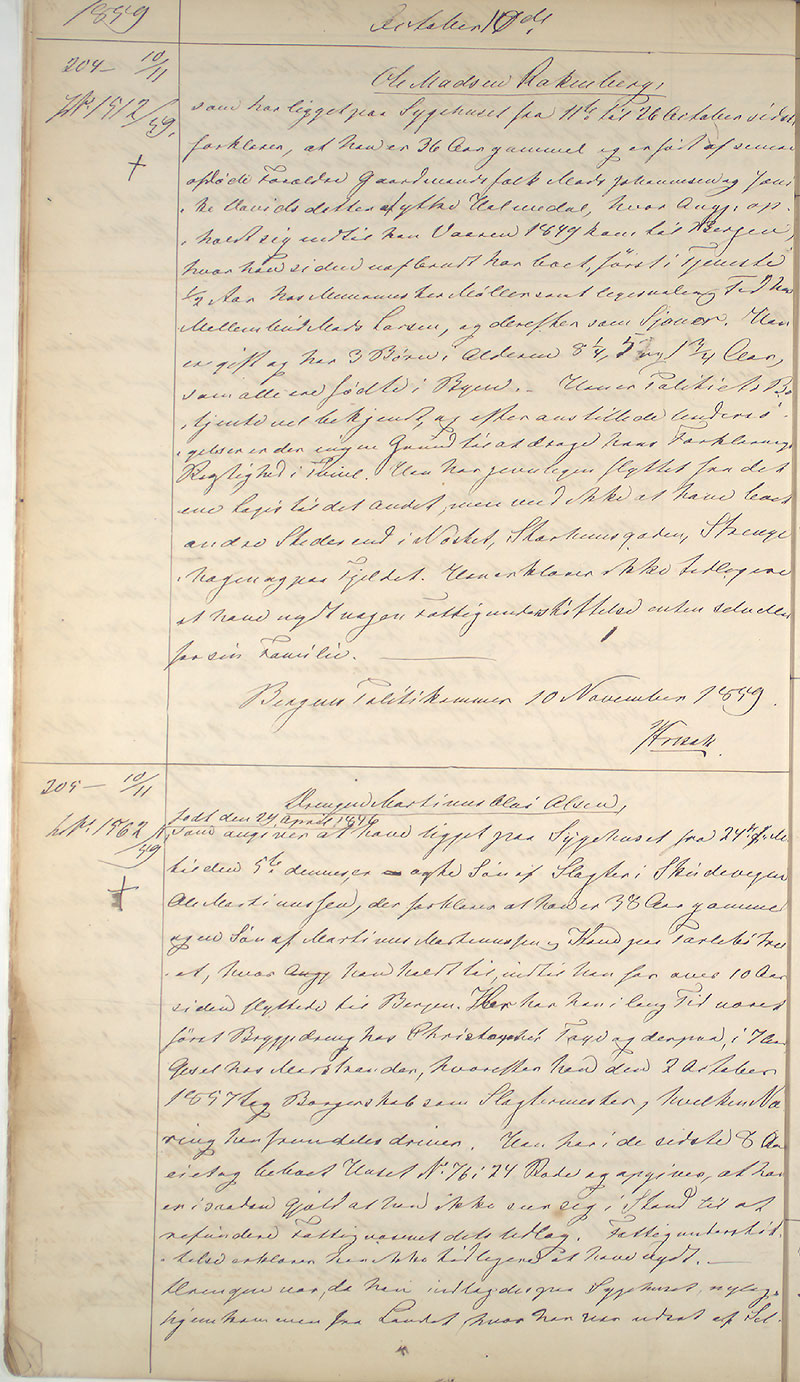 1859
October 10de
204 - 10/11
Ole Madsen Rakneberg,
JN: 1512/59.
som har ligget paa Sygehuset fra 11te til 26 October sidstl.
forklarer, at han er 36 Aar gammel og er født af
afdøde Forældre Gaardmandsfolk Mads Johannesen og
Davidsdatter Ytre Holmedal, hvor Angj. op-
holdt sig indtil han Vaaren 1849 kom til Bergen,
hvor han siden uafbrudt har boet, først i Tjeneste
1/2 Aar hos Muurmester Møller samt ligesaalang Tid hos
Mads Larsen, og derefter som Sjouer. Han
er gift og har 3 Børn i Alderen 8 1/4, 5 og 1 3/4 Aar,
som alle ere fødte i Byen. - Han er Politiets Be-
tjente vel bekjendt, og efter anstillede Undersø-
gelser er der ingen Grund til at drage hans Forklarings
Rigtighed i Tvivl. Han har jevnligen flyttet fra det
ene Logis til det andet, men ved ikke at have boet
andre Steder end i Nøstet, Skarhemsgaden, Strange-
hagen og paa Fjeldet. Han erklærer ikke tidligere
at have nydt nogen Fattigunderstøttelse enten selv eller
for sin Familie.
Bergens Politikammer 10 November 1859.
205 - 10/11
Drengen Martinus Olai Olsen,
født den 24 April 1846
JN: 1562/59
som angives at have ligget paa Sygehuset fra 24de f. M.
til den 5te dennes, er ægte Søn af Slagter i Skudevigen
Ole Martinussen, der forklarer at han er 38 Aar gammel
og en Søn af Martinus Martinussen og Hustru paa
hvor Angj han holdt til, indtil han for over 10 Aar
siden flyttede til Bergen. Her har han i lang Tid været
først Bryggedreng hos Christopher og derpaa i 7 Aar
Gesel hos Marstrander, hvorefter han den 2 October
1857 tog Borgerskab som Slagtermester, hvilken Næ-
ring han fremdeles driver. Han har i de sidste 8 Aar
eiet og beboet Huset No. 76 i 24 Rode og opgiver, at han
er i saadan Gjæld at han ikke seer sig i Stand til at
refundere Fattigvæsenet dets Udlæg. Fattigunderstøt-
telse erklærer han ikke tidligere at have nydt. -
Drengen var, da han indlagdes paa Sygehuset, nylig
hjemkommen fra Landet, hvor han var udsat af